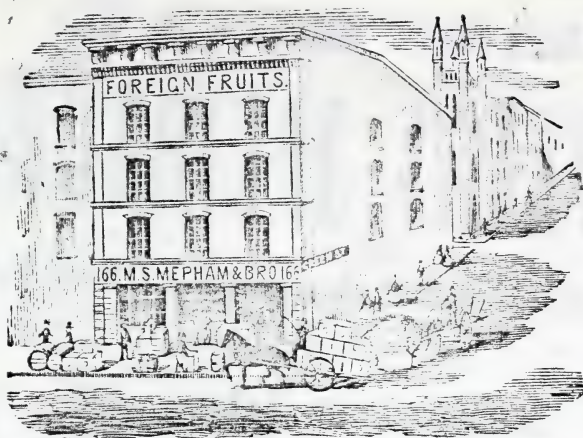 FOREIGN FRUITS.
166. M. S. MEPHAM & BRO 166